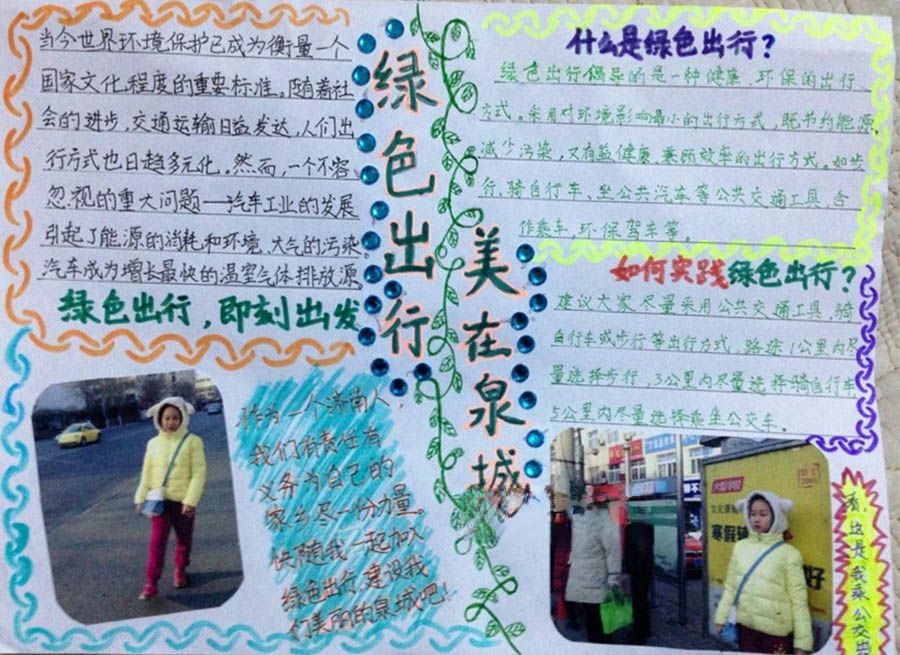 绿色出行
美在泉城
当今世界环境保护已成为衡量一个
国家文化程度的重要标准。随着社
会的进步,交通运输日益发达,人们出
行方式也日趋多元化。然而,一个不容
忽视的重大问题——汽车工业的发展
引起了能源的消耗和环境、大气的污染
汽车成为增长最快的温室气体排放源
绿色出行,即刻出发
什么是绿色出行?
绿色出行倡导的是一种健康、环保的出行
方式。采用对环境影响最小的出行方式,既节约能源、
减少污染,又有益健康、兼顾效率的出行方式。如步
行、骑自行车、坐公共汽车等公共交通工具、合
作乘车、环保驾车等。
如何实践绿色出行?
建议大家尽量采用公共交通工具、骑
自行车或步行等出行方式,路途1公里内尽
量选择步行,3公里内尽量选择骑自行车,
5公里内尽量选择乘坐公交车。
作为一个济南人,
我们有责任有
义务为自己的
家乡尽一份力量。
快随我一起加入
绿色出行,建设我
们美丽的泉城吧!
看,这是我乘公交出
寒假
好